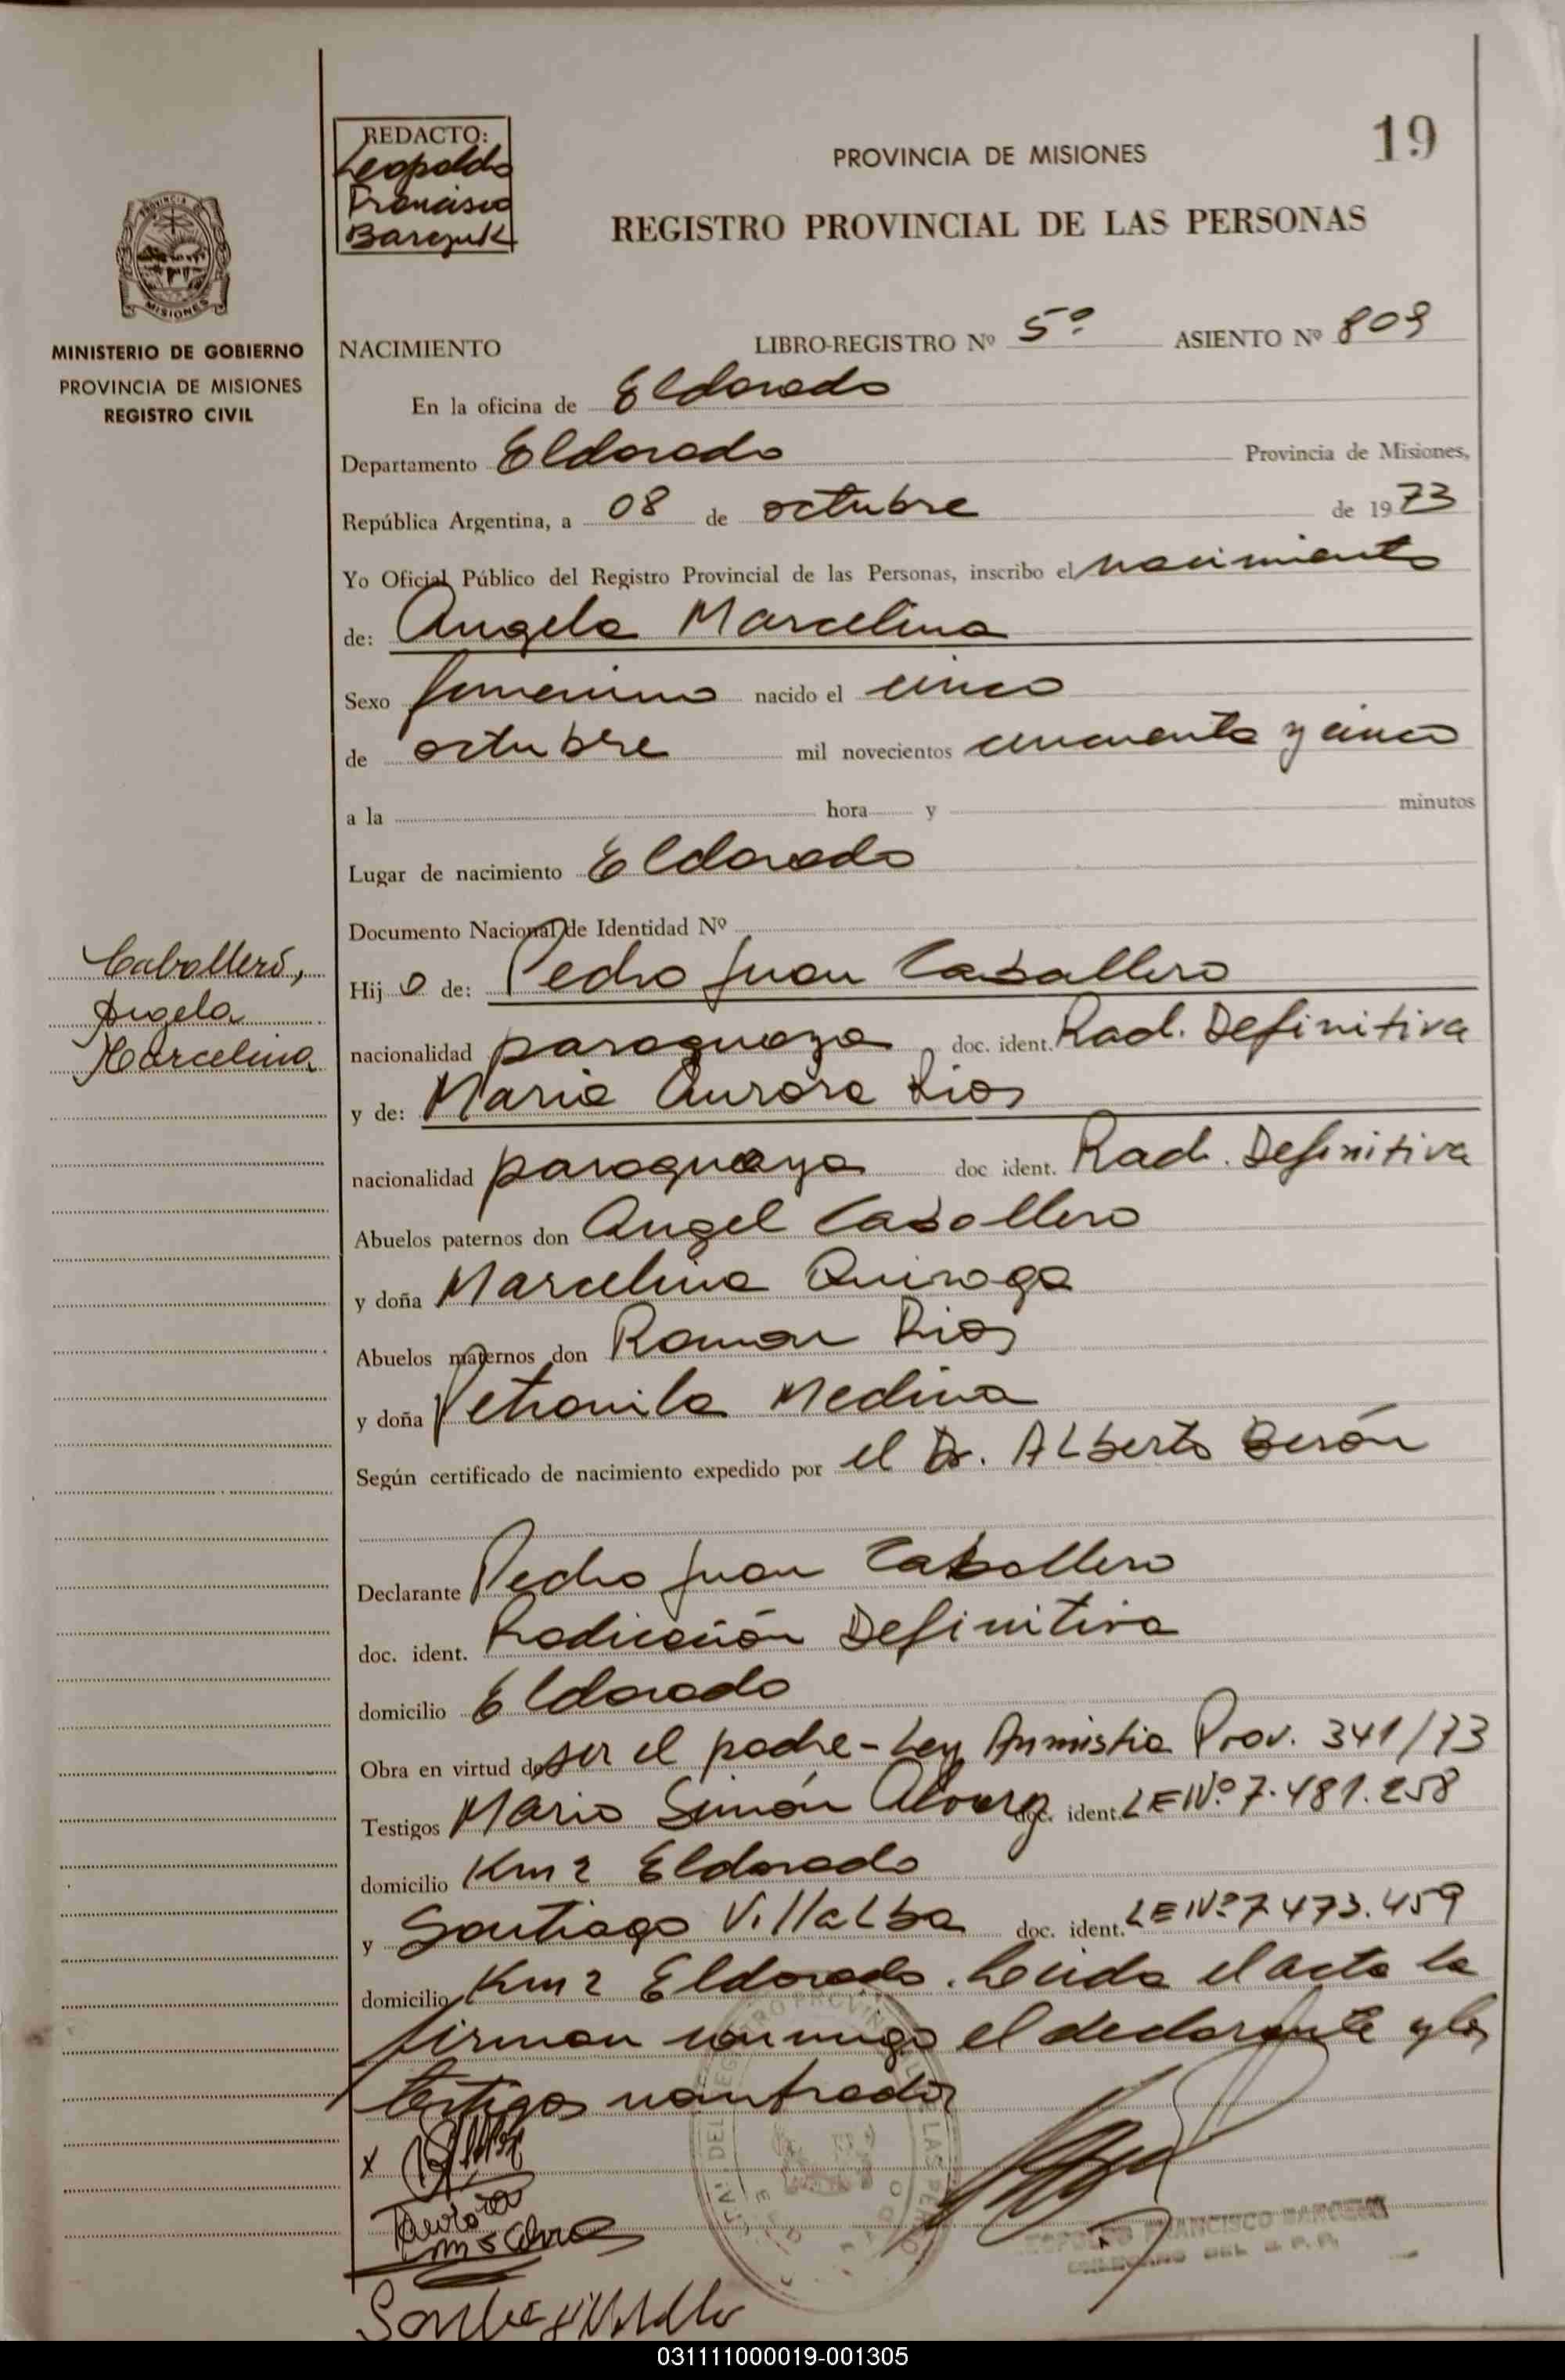 19
REDACTO:
Leopoldo
Francisco
Barczuk
PROVINCIA DE MISIONES
REGISTRO PROVINCIAL DE LAS PERSONAS
PROVINCIA DE
MISIONES
MINISTERIO DE GOBIERNO
PROVINCIA DE MISIONES
REGISTRO CIVIL
NACIMIENTO LIBRO-REGISTRO Nº 5º ASIENTO Nº 809
En la oficina de Eldorado
Departamento Eldorado Provincia de Misiones,
República Argentina, a 08 de octubre de 1973
Yo Oficial Público del Registro Provincial de las Personas, inscribo el nacimiento
de: Angela Marcelina
Sexo femenino nacido el cinco
de octubre mil novecientos cincuenta y cinco
a la hora y minutos
Lugar de nacimiento Eldorado
Documento Nacional de Identidad Nº
Caballero,
Angela
Marcelina
Hij o de: Pedro Juan Caballero
nacionalidad paraguaya doc. ident. Rad. Definitiva
y de: Maria Aurora Rios
nacionalidad paraguaya doc ident. Rad. Definitiva
Abuelos paternos don Angel Caballero
y doña Marcelina Quiroga
Abuelos maternos don Roman Rios
y doña Petronila Medina
Según certificado de nacimiento expedido por el Dr. Alberto Berón
Declarante Pedro Juan Caballero
doc. ident. Radicación Definitiva
domicilio Eldorado
Obra en virtud de ser el padre - Ley Amnistia Prov. 341/73
Testigos Mario Simón Alvarez doc. ident. LE Nº 7.481.258
domicilio Km 2 Eldorado
y Santiago Villalba doc. ident. LE Nº 7.473.459
domicilio Km 2 Eldorado. Leida el acta la
firman conmigo el declarante y los
testigos nombrados
X
FRANCISCO
DEL R. P. P.
031111000019-001305